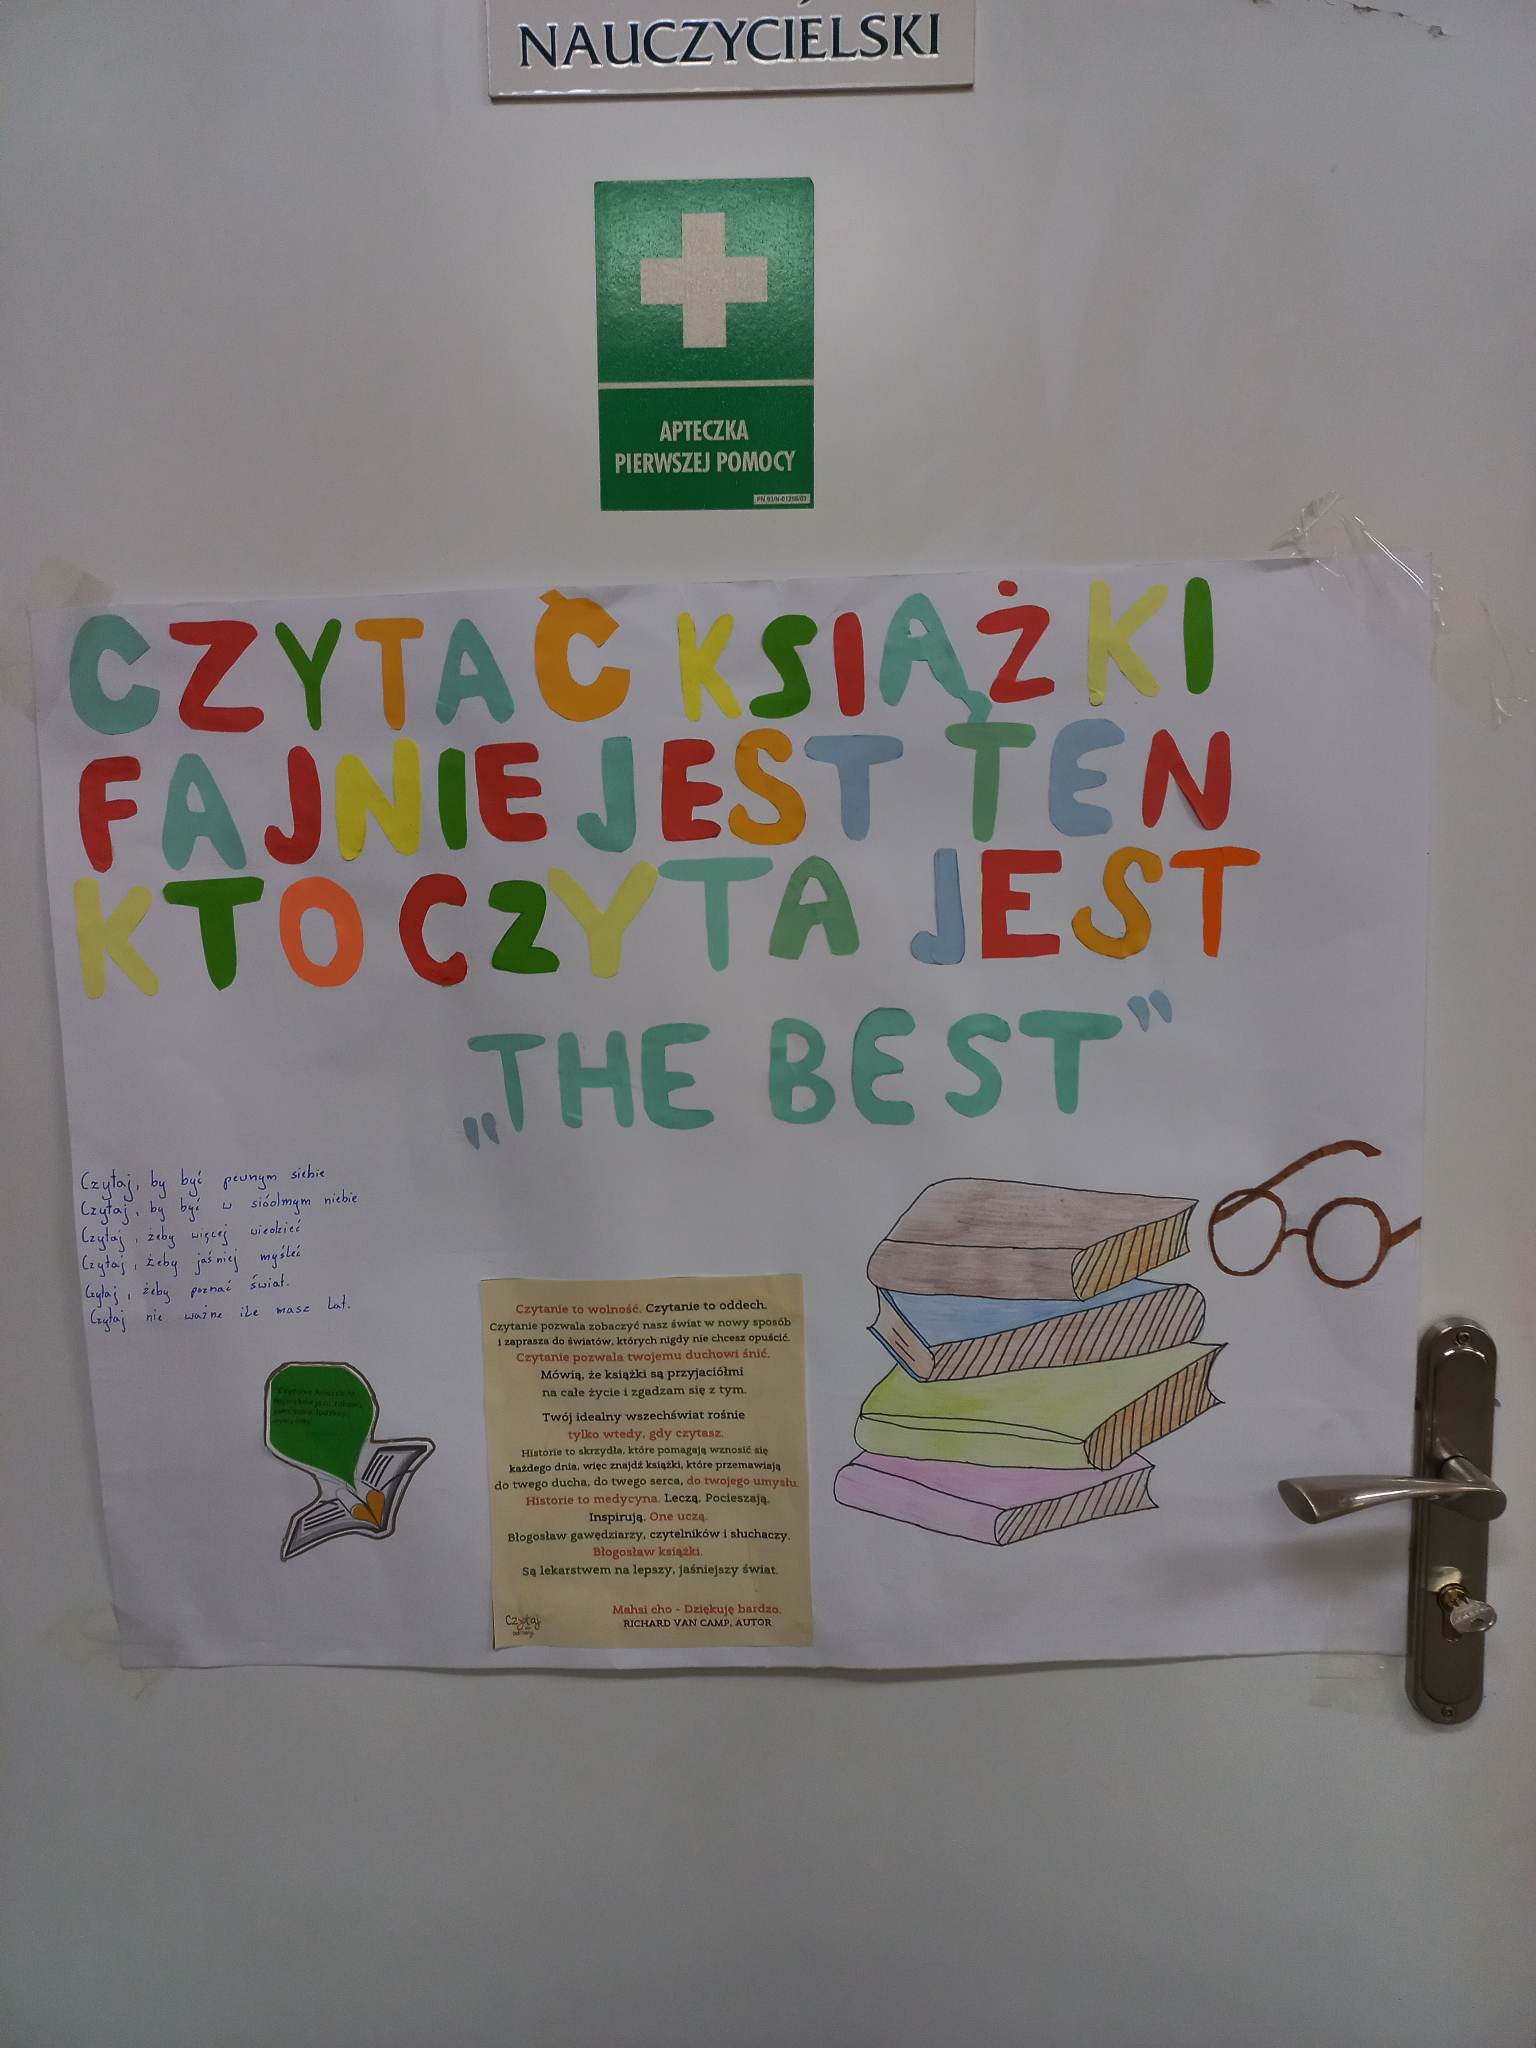 NAUCZYCIELSKI
APTECZKA
PIERWSZEJ POMOCY
CZYTAĆ KSIĄŻKI
FAJNIE JEST TEN
KTO CZYTA JEST
„THE BEST”
Czytaj, by być pewnym siebie
Czytaj, by być w siódmym niebie
Czytaj, żeby więcej wiedzieć
Czytaj, żeby jaśniej myśleć
Czytaj, żeby poznać świat.
Czytaj nie ważne ile masz lat.
Czytanie to wolność. Czytanie to oddech.
Czytanie pozwala zobaczyć nasz świat w nowy sposób
i zaprasza do światów, których nigdy nie chcesz opuścić.
Czytanie pozwala twojemu duchowi śnić.
Mówią, że książki są przyjaciółmi
na całe życie i zgadzam się z tym.
Twój idealny wszechświat rośnie
tylko wtedy, gdy czytasz.
Historie to skrzydła, które pomagają wznosić się
każdego dnia, więc znajdź książki, które przemawiają
do twego ducha, do twego serca, do twojego umysłu.
Historie to medycyna. Leczą. Pocieszają.
Inspirują. One uczą.
Błogosław gawędziarzy, czytelników i słuchaczy.
Błogosław książki.
Są lekarstwem na lepszy, jaśniejszy świat.
Mahsi cho - Dziękuję bardzo.
RICHARD VAN CAMP, AUTOR
Czytaj